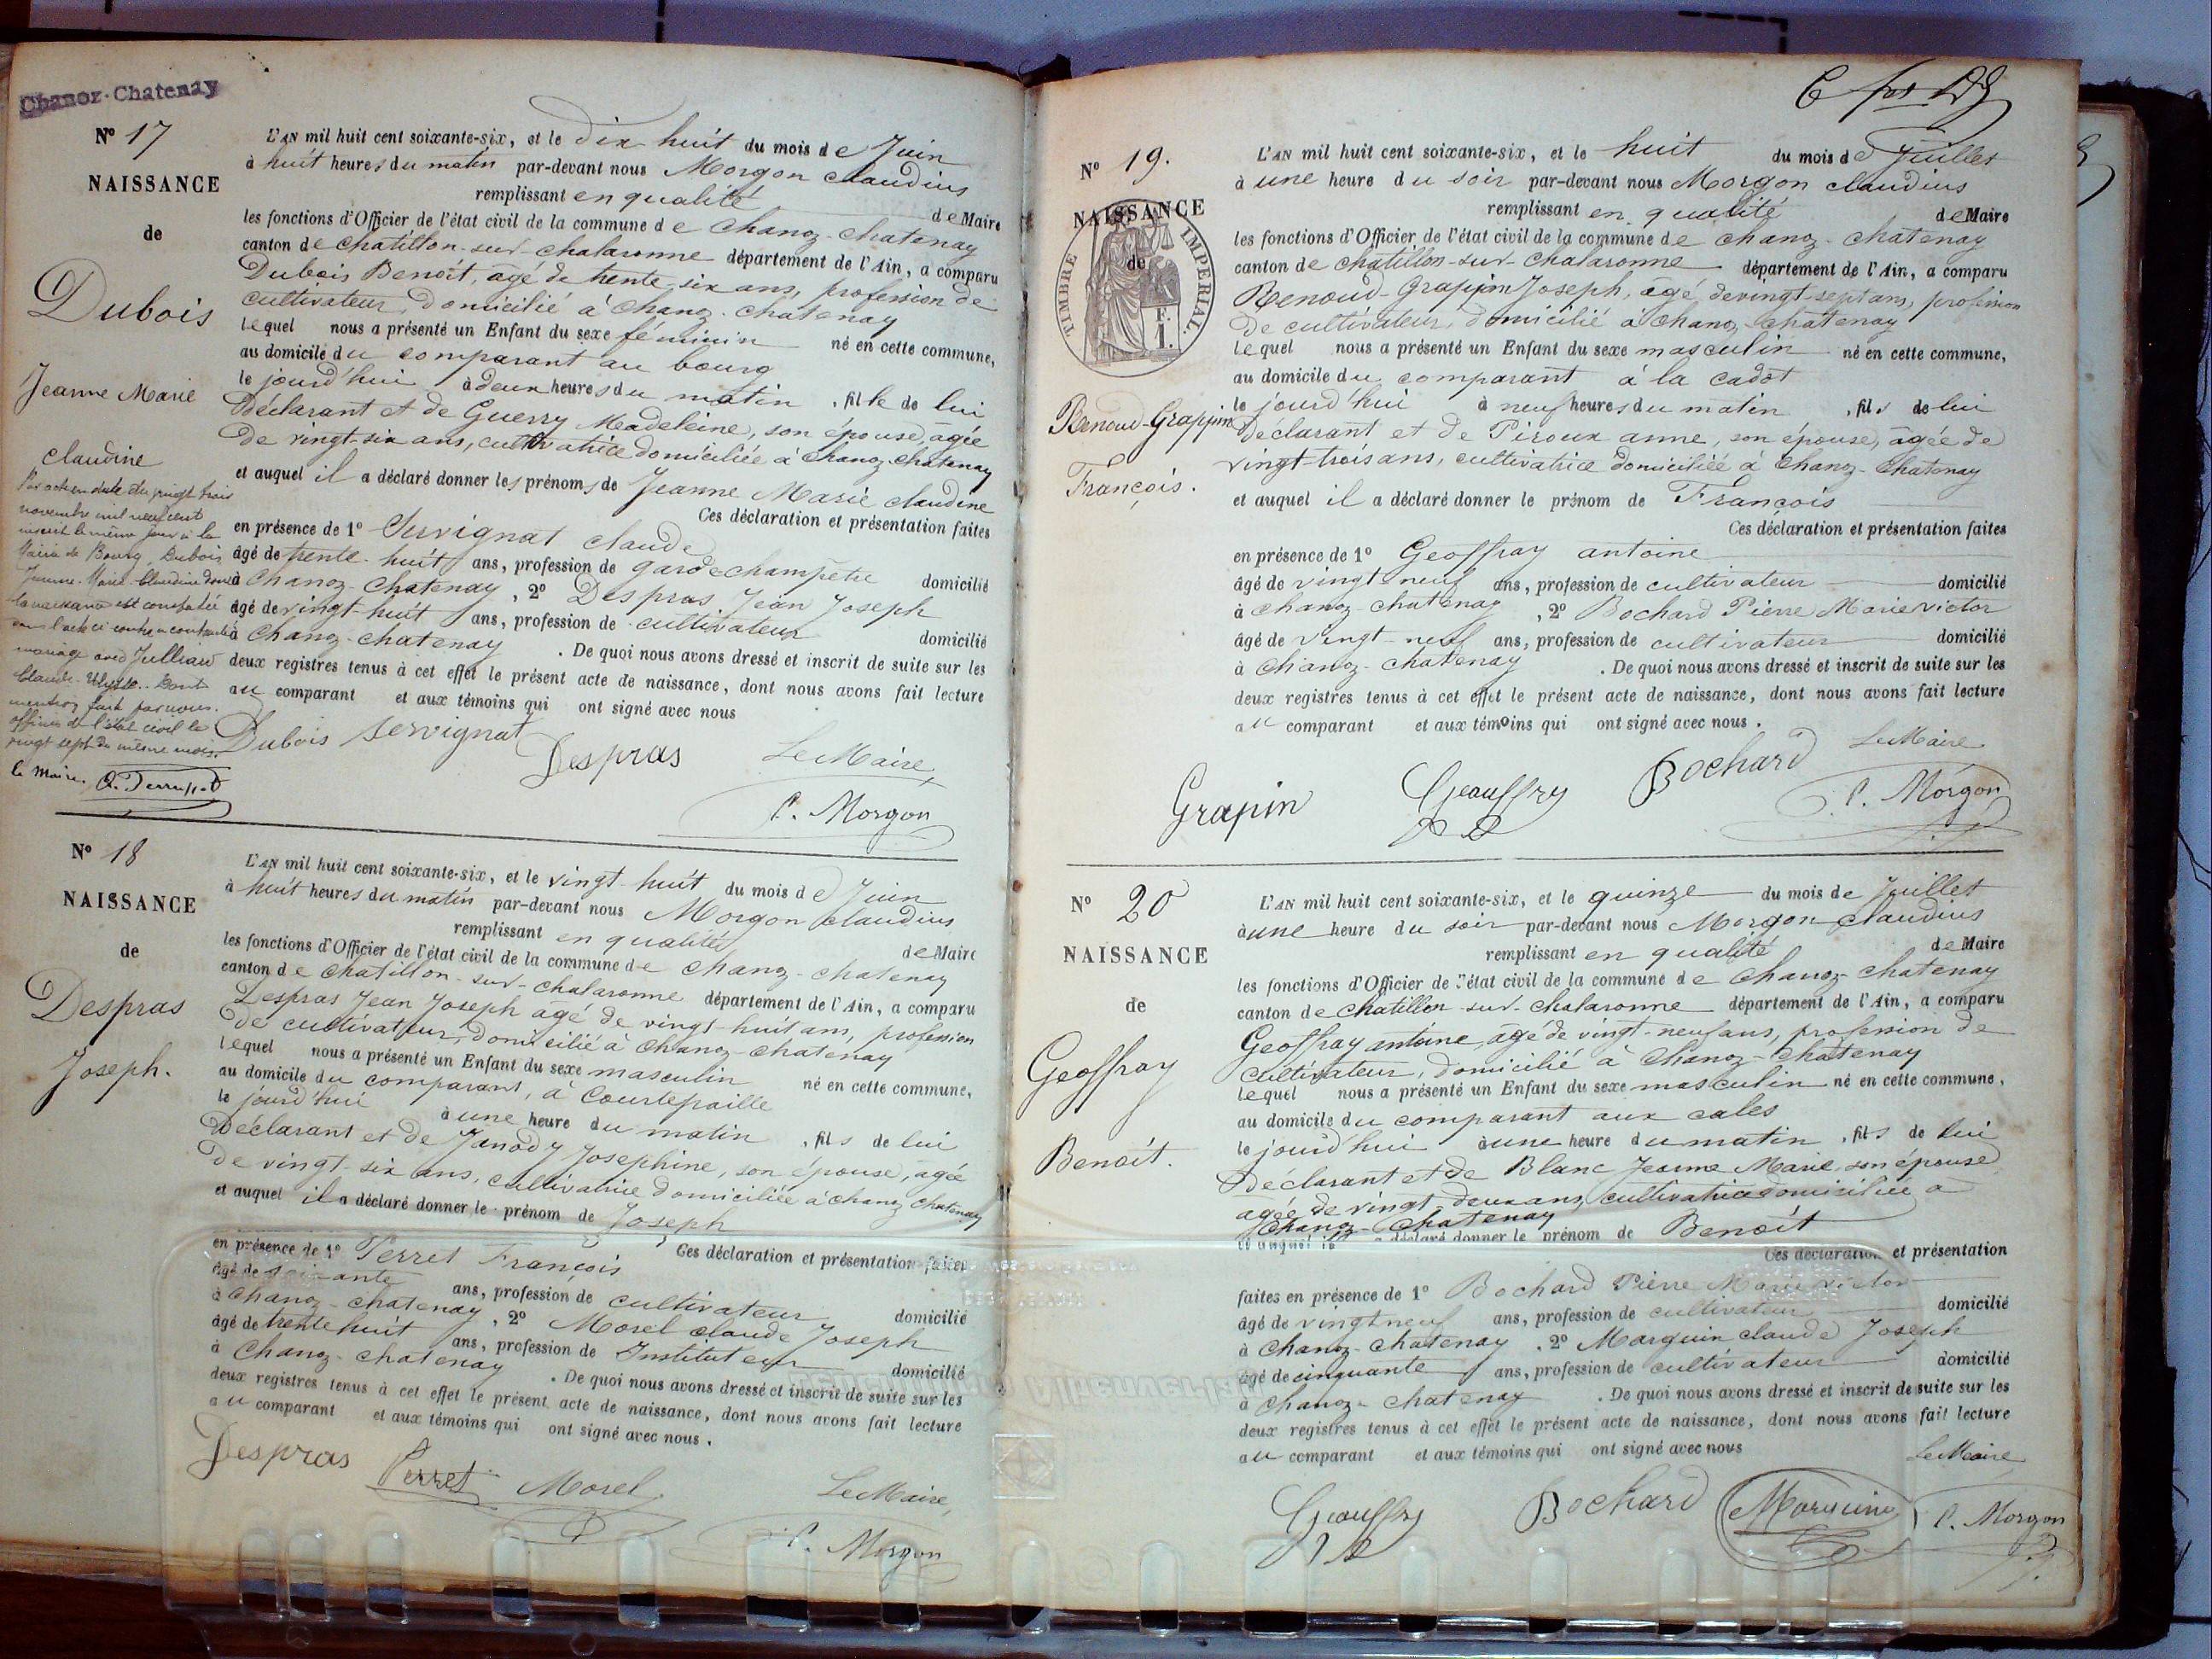 Chanoz-Chatenay
Nº 17
NAISSANCE
de
Dubois
Jeanne Marie
claudine
Par acte en date du vingt trois
novembre mil neuf cent
inscrit le même jour à la
Mairie de Bourg, Dubois
Jeanne-Marie-Claudine dont
la naissance est constatée
dans l'acte ci contre a contracté
mariage avec Jullian
Claude-Ulysse. Dont
mention faite par nous.
officier de l'état civil le
vingt sept du même mois.
le Maire.
L'AN mil huit cent soixante-six, et le dix huit du mois de Juin
à huit heures du matin par-devant nous Morgon claudius
remplissant en qualité de Maire
les fonctions d'Officier de l'état civil de la commune de Chanoz-Chatenay
canton de chatillon-sur-chalaronne département de l'Ain, a comparu
Dubois Benoît, agé de trente-six ans, profession de
cultivateur, domicilié à Chanoz-Chatenay
lequel nous a présenté un Enfant du sexe féminin né en cette commune,
au domicile du comparant au bourg
le jourd'hui à deux heures du matin , fille de lui
Déclarant et de Guerry Madeleine, son épouse, agée
de vingt-six ans, cultivatrice domiciliée à Chanoz-Chatenay
et auquel il a déclaré donner les prénoms de Jeanne Marie claudine
Ces déclaration et présentation faites
en présence de 1º Servignat claude
âgé de trente-huit ans, profession de garde champêtre domicilié
à Chanoz-Chatenay , 2º Despras Jean Joseph
âgé de vingt-huit ans, profession de cultivateur domicilié
à Chanoz-chatenay . De quoi nous avons dressé et inscrit de suite sur les
deux registres tenus à cet effet le présent acte de naissance, dont nous avons fait lecture
au comparant et aux témoins qui ont signé avec nous
Dubois Servignat
Despras Le Maire,
C. Morgon
Nº 18
NAISSANCE
de
Despras
Joseph.
L'AN mil huit cent soixante-six, et le vingt-huit du mois de Juin
à huit heures du matin par-devant nous Morgon Claudius
remplissant en qualité de Maire
les fonctions d'Officier de l'état civil de la commune de Chanoz-chatenay
canton de chatillon-sur-chalaronne département de l'Ain, a comparu
Despras Jean Joseph agé de vingt-huit ans, profession
de cultivateur, domicilié à Chanoz-chatenay
lequel nous a présenté un Enfant du sexe masculin né en cette commune,
au domicile du comparant, à Courtepaille
le jourd'hui à une heure du matin , fils de lui
Déclarant et de Janody Josephine, son épouse, agée
de vingt-six ans, cultivatrice domiciliée à Chanoz Chatenay
et auquel il a déclaré donner le prénom de Joseph
Ces déclaration et présentation faites
en présence de 1º Perret François
âgé de soixante ans, profession de cultivateur domicilié
à Chanoz-chatenay , 2º Morel claude Joseph
âgé de trente huit ans, profession de Instituteur domicilié
à Chanoz-chatenay . De quoi nous avons dressé et inscrit de suite sur les
deux registres tenus à cet effet le présent acte de naissance, dont nous avons fait lecture
au comparant et aux témoins qui ont signé avec nous.
Despras Perret Morel Le Maire,
C. Morgon
Nº 19.
NAISSANCE
de
TIMBRE IMPERIAL.
F.
1.
Renoud-Grappin
François.
L'AN mil huit cent soixante-six, et le huit du mois de Juillet
à une heure du soir par-devant nous Morgon claudius
remplissant en qualité de Maire
les fonctions d'Officier de l'état civil de la commune de Chanoz-Chatenay
canton de chatillon-sur-Chalaronne département de l'Ain, a comparu
Renoud-Grappin Joseph, agé de vingt-sept ans, profession
de cultivateur, domicilié à Chanoz-Chatenay
lequel nous a présenté un Enfant du sexe masculin né en cette commune,
au domicile du comparant à la cadot
le jourd'hui à neuf heures du matin , fils de lui
Déclarant et de Piroux anne, son épouse, âgée de
vingt-trois ans, cultivatrice domiciliée à Chanoz-Chatenay
et auquel il a déclaré donner le prénom de François
Ces déclaration et présentation faites
en présence de 1º Geoffray antoine
âgé de vingt neuf ans, profession de cultivateur domicilié
à Chanoz-chatenay , 2º Bochard Pierre Marie victor
âgé de vingt-neuf ans, profession de cultivateur domicilié
à Chanoz-chatenay . De quoi nous avons dressé et inscrit de suite sur les
deux registres tenus à cet effet le présent acte de naissance, dont nous avons fait lecture
au comparant et aux témoins qui ont signé avec nous.
Le Maire
Grapin Geauffry Bochard C. Morgon
Nº 20
NAISSANCE
de
Geoffray
Benoît.
L'AN mil huit cent soixante-six, et le quinze du mois de Juillet
à une heure du soir par-devant nous Morgon claudius
remplissant en qualité de Maire
les fonctions d'Officier de l'état civil de la commune de Chanoz-Chatenay
canton de Chatillon-sur-Chalaronne département de l'Ain, a comparu
Geoffray antoine, agé de vingt-neuf ans, profession de
Cultivateur, domicilié à Chanoz-Chatenay
lequel nous a présenté un Enfant du sexe masculin né en cette commune,
au domicile du comparant aux cales
le jourd'hui à une heure du matin , fils de lui
Déclarant et de Blanc Jeanne Marie, son épouse
agée de vingt-deux ans, cultivatrice domiciliée à
Chanoz-Chatenay
et auquel il a déclaré donner le prénom de Benoît
Ces déclaration et présentation
faites en présence de 1º Bochard Pierre Marie victor
âgé de vingt neuf ans, profession de cultivateur domicilié
à Chanoz-Chatenay , 2º Marguin claude Joseph
âgé de cinquante ans, profession de cultivateur domicilié
à Chanoz-chatenay . De quoi nous avons dressé et inscrit de suite sur les
deux registres tenus à cet effet le présent acte de naissance, dont nous avons fait lecture
au comparant et aux témoins qui ont signé avec nous
Le Maire
Geauffry Bochard Marguin C. Morgon